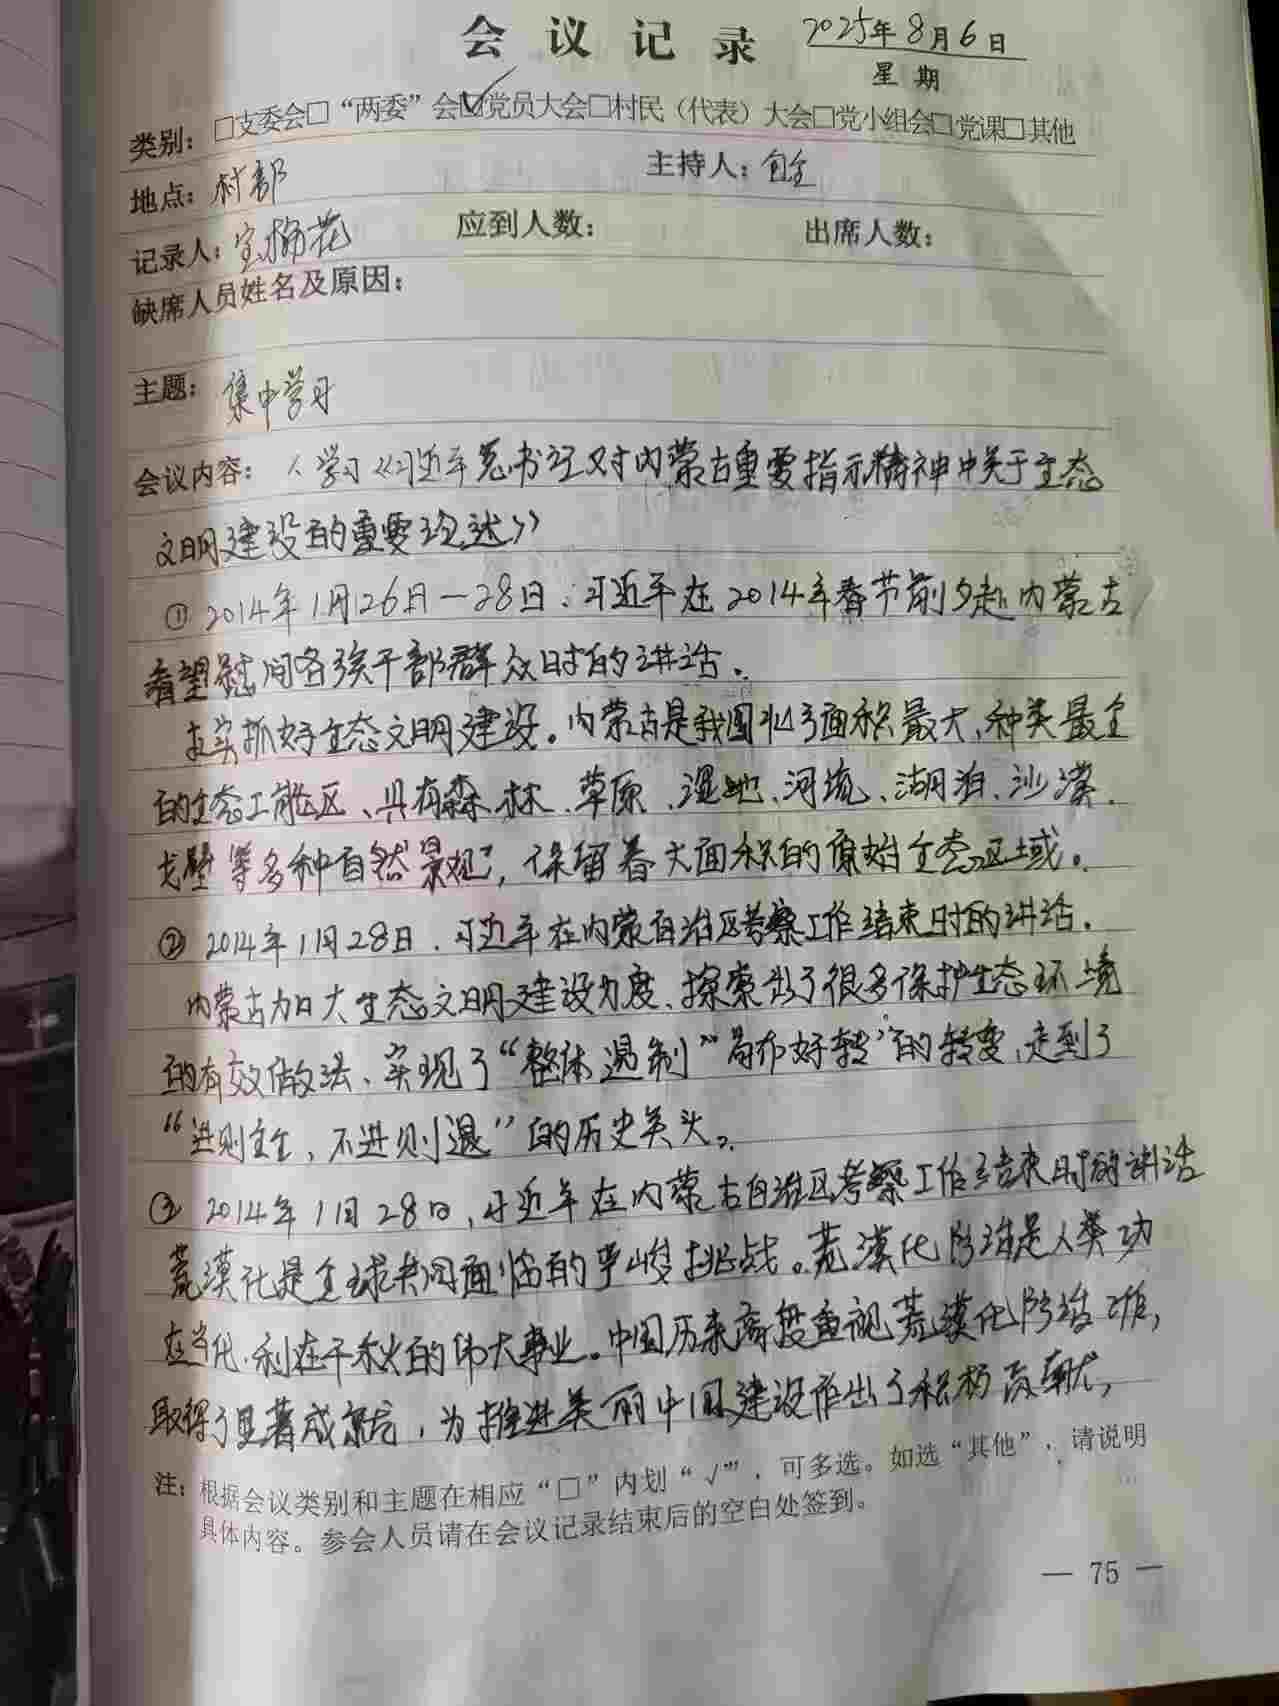 会议记录 2025年8月6日
星期
类别：□支委会□“两委”会☑党员大会□村民（代表）大会□党小组会□党课□其他
地点：村部 主持人：
记录人：宝梅花 应到人数： 出席人数：
缺席人员姓名及原因：
主题：集中学习
会议内容：1、学习《习近平总书记对内蒙古重要指示精神中关于生态
文明建设的重要论述》
① 2014年1月26日—28日，习近平在2014年春节前夕赴内蒙古
看望慰问各族干部群众时的讲话。
扎实抓好生态文明建设。内蒙古是我国北方面积最大、种类最全
的生态功能区、具有森林、草原、湿地、河流、湖泊、沙漠、
戈壁等多种自然景观，保留着大面积的原始生态区域。
② 2014年1月28日，习近平在内蒙自治区考察工作结束时的讲话。
内蒙古加大生态文明建设力度、探索出了很多保护生态环境
的有效做法、实现了“整体遏制”局部好转”的转变，走到了
“进则全，不进则退”的历史关头。
③ 2014年1月28日，习近平在内蒙古自治区考察工作结束时的讲话
荒漠化是全球共同面临的严峻挑战。荒漠化防治是人类功
在当代、利在千秋的伟大事业。中国历来高度重视荒漠化防治工作，
取得了显著成就，为推进美丽中国建设作出了积极贡献，
注：根据会议类别和主题在相应“□”内划“√”，可多选。如选“其他”，请说明
具体内容。参会人员请在会议记录结束后的空白处签到。
— 75 —